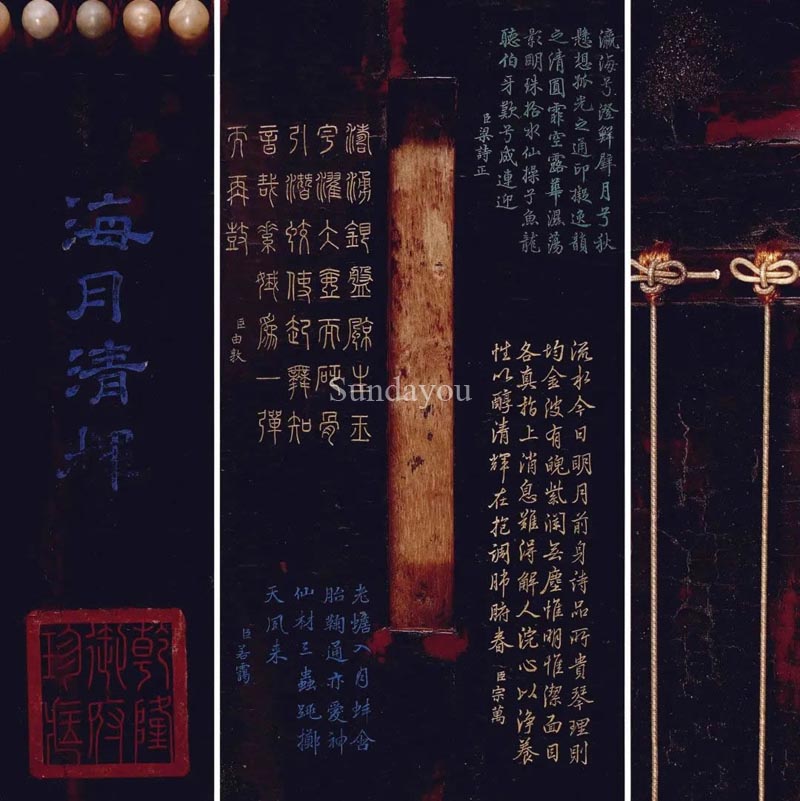 海月清煇
乾隆御府珍藏
瀛海兮澄鮮
月兮秋
懸想孤光之通印擬逸韻
之清圓霏空露華濕蕩
影明珠拾水仙操兮魚龍
聽伯牙歎兮成連迎
臣梁詩正
濤湧銀盤
玉
引潛蛟使起舞知
音哉素娥為一彈
而再鼓
臣由敦
流水今日明月前身詩品所貴琴理則
均金波有魄紫瀾無塵惟明惟潔面目
各真指上消息難得解人浣心以淨養
性以醇清輝在抱調肺腑春 臣宗萬
老蟾入月蚌含
胎鞠通亦愛神
仙材三蟲跳擲
天風来
臣若靄
Sundayou